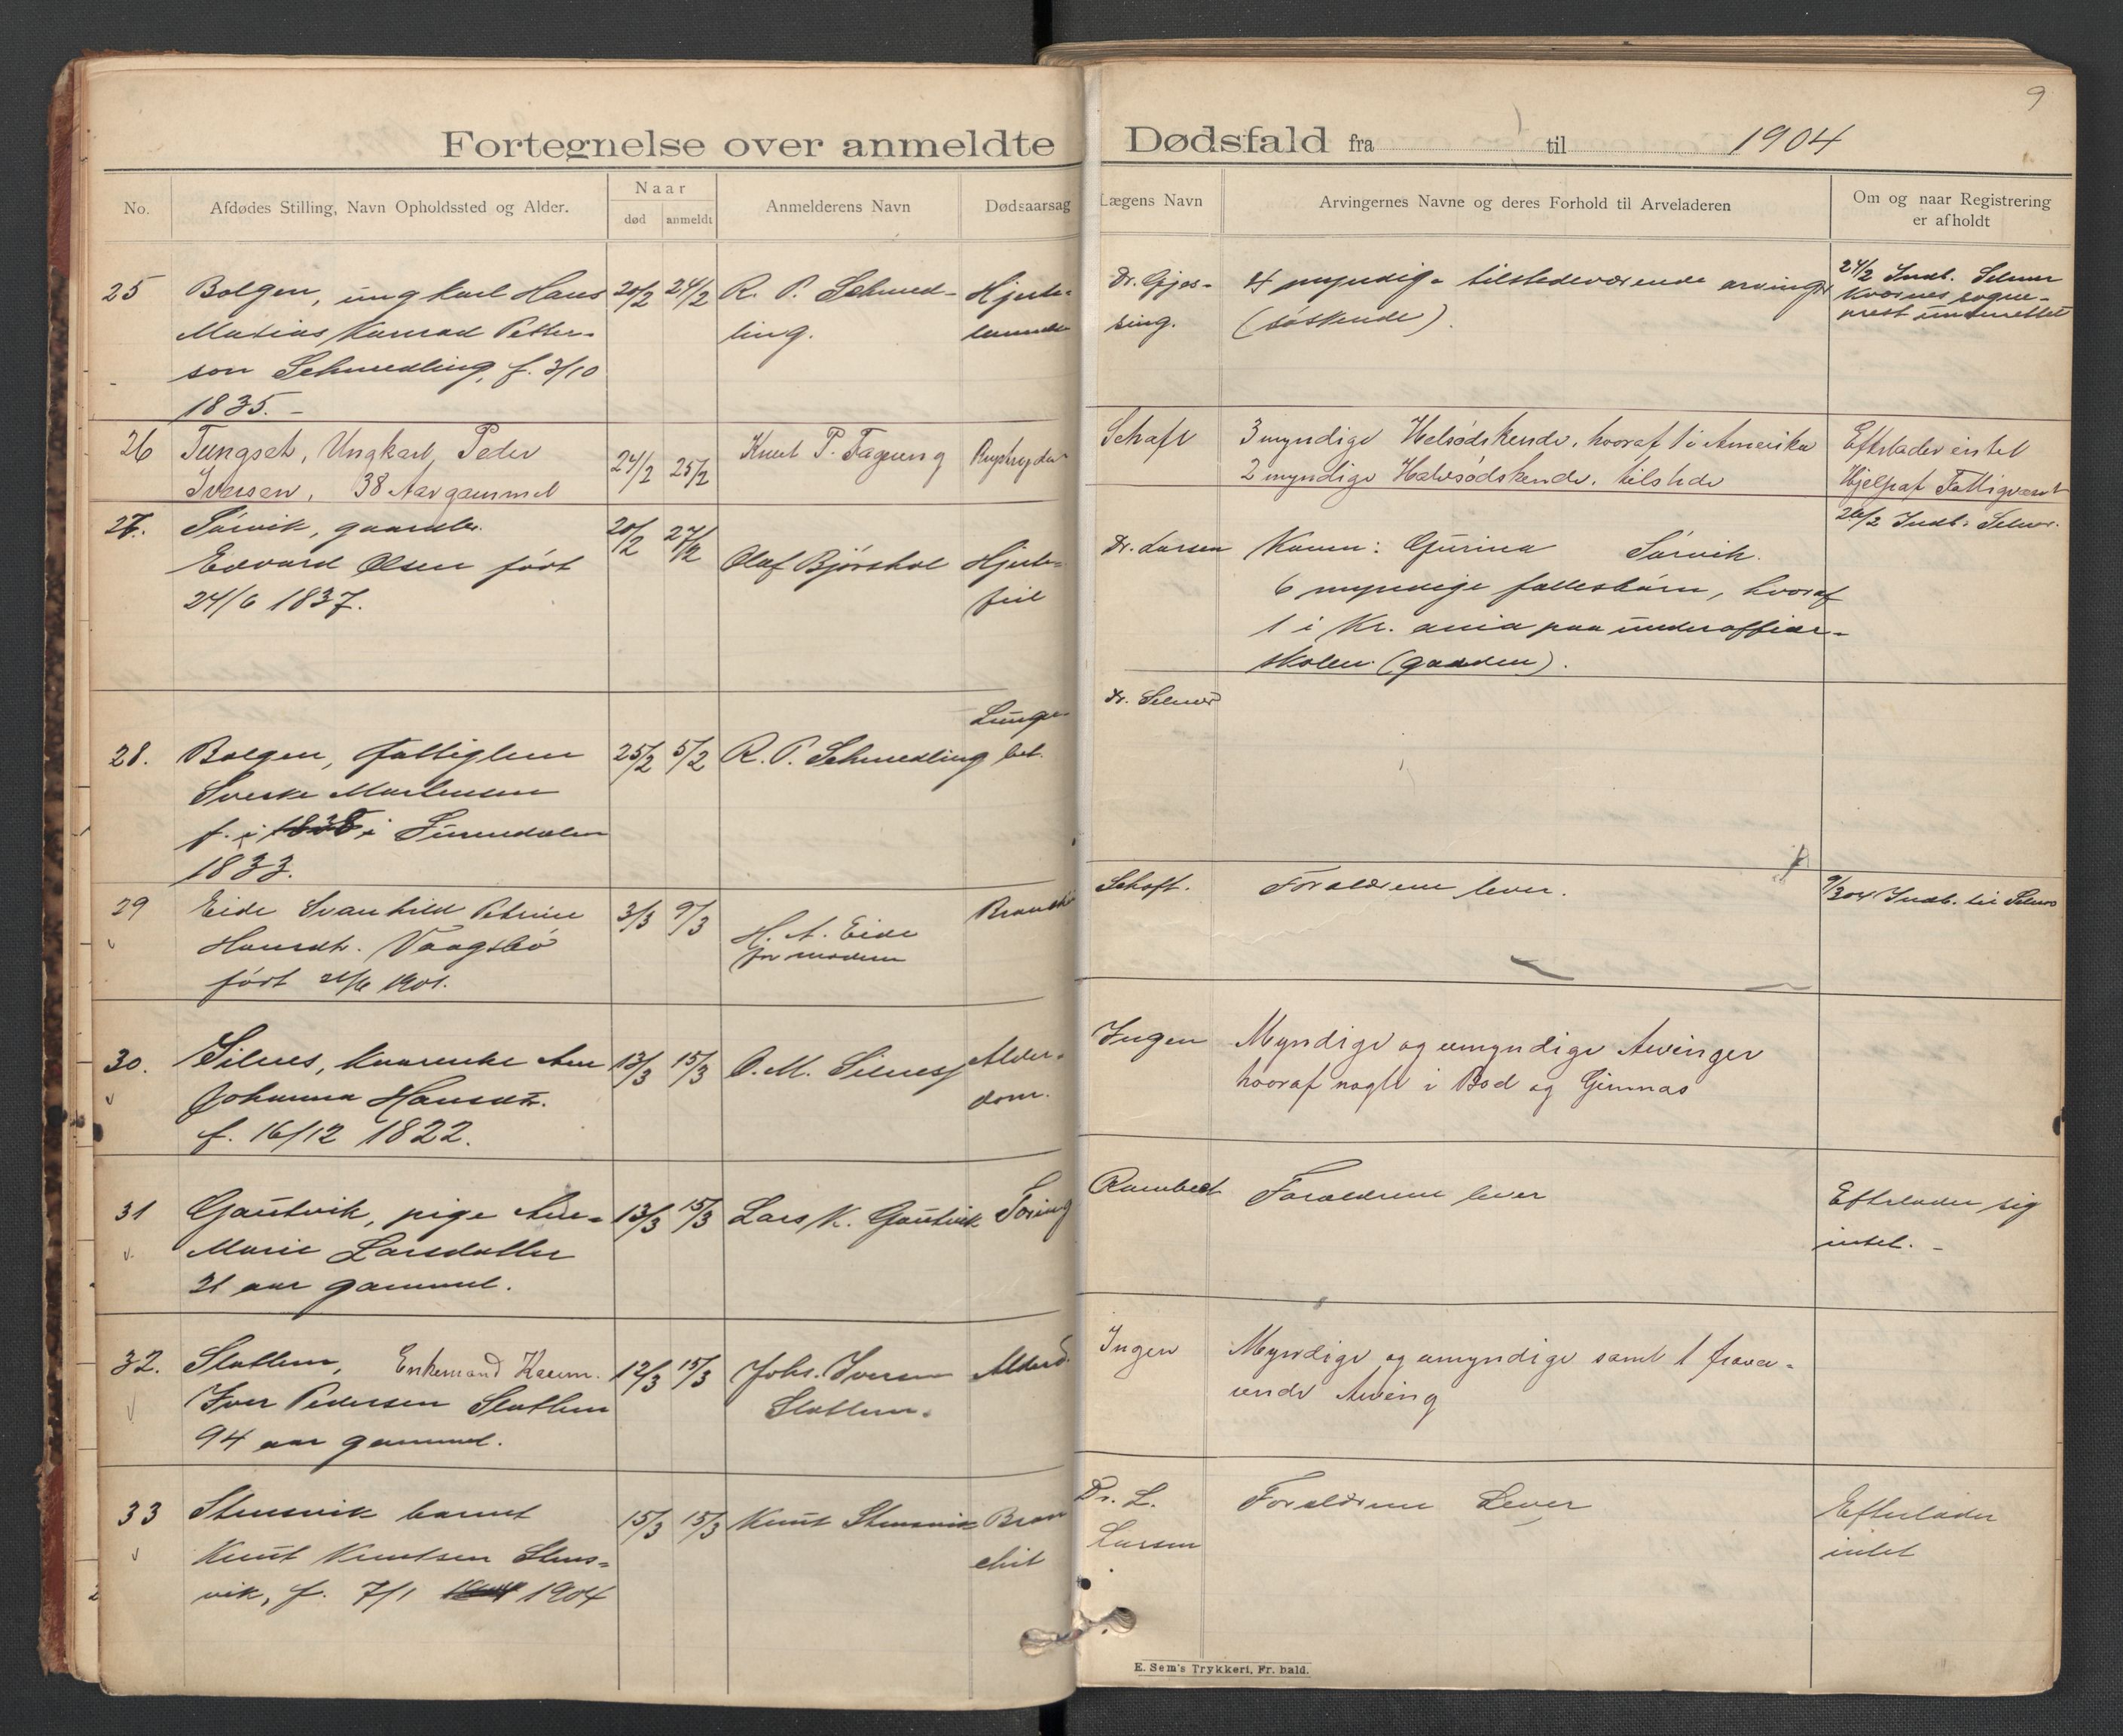 9
Fortegnelse over anmeldte Dødsfald fra til 1904
No.
Afdødes Stilling, Navn Opholdssted og Alder.
Naar
død
anmeldt
Anmelderens Navn
Dødsaarsag
Lægens Navn
Arvingernes Navne og deres Forhold til Arveladeren
Om og naar Registrering
er afholdt
25
Bolgen, ungkarl Hans
Matias Konrad Petter-
son Schmedling, f. 3/10
1835. -
20/2
24/2
R. P. Schmed-
ling.
Hjerte-
Dr. Gjes-
sing.
4 myndige tilstedeværende arvinger
(søskende).
24/2 Indb. Selmer
Kvernes sogne-
prest underrettet
26
Tungset, Ungkarl, Peder
Iversen, 38 Aar gammel
24/2
25/2
Knut P. Fagerung
Schaft
3 myndige Helsødskende, hvoraf 1 i Amerika
2 myndige Halvsødskende, tilstede
Efterlader intet
Hjelp af Fattigvæsnet
27.
Sørvik, gaardbr.
Edvard Olsen født
24/6 1837.
20/2
27/2
Olaf Bjørshol
Hjerte-
feil
Dr. Larsen
Konen: Gurina Sørvik.
6 myndige fællesbørn, hvoraf
1 i Kr. ania paa underofficer-
skolen. (gaarden).
26/2 Indb. Selmer.
28.
Bolgen, fattiglem
Sverke Martinsen
f. i 1838 i Surendalen
1833.
25/2
5/2
R. P. Schmedling
Lunge-
bet.
Dr. Selmer
29
Eide Svanhild Petrine
Hansdtr. Vaagsbø
født 21/6 1901.
3/3
9/3
H. A. Eide
for moderen
Schaft.
Forældrene lever.
9/3 04 Indb. til Selmer
30.
Silnes, kaarenke Ane
Johanna Hansdtr.
f. 16/12 1822.
13/3
15/3
O. M. Silnes
Alder-
dom.
Ingen
Myndige og umyndige Arvinger
hvoraf nogle i Bod og Gimnas
31
Gautvik, pige Ane-
Marie Larsdatter
21 aar gammel.
13/3
15/3
Lars K. Gautvik
Tæring
Rambech
Forældrene lever
Efterlader sig
intet. -
32.
Slatlem, Enkemand Kaarm.
Iver Pedersen Slatlem
94 aar gammel.
12/3
15/3
Johs. Iversen
Slatlem.
Alderd.
Ingen
Myndige og umyndige samt 1 fravæ-
rende Arving
33
Stensvik barnet
Knut Knutsen Stens-
vik, f. 7/1 1904
15/3
15/3
Knut Stensvik
Bron
chit
Dr. L.
Larsen
Forældrene Lever
Efterlader
intet
E. Sem's Trykkeri, Fr. hald.